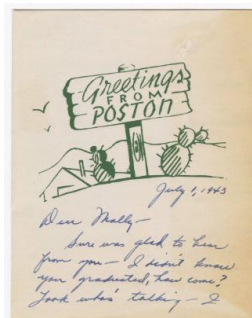 Greetings
FROM
POSTON
July 1, 1943
Dear Molly-
Sure was glad to hear
from you - I didn't know
you graduated, how come?
Look whos' talking - I